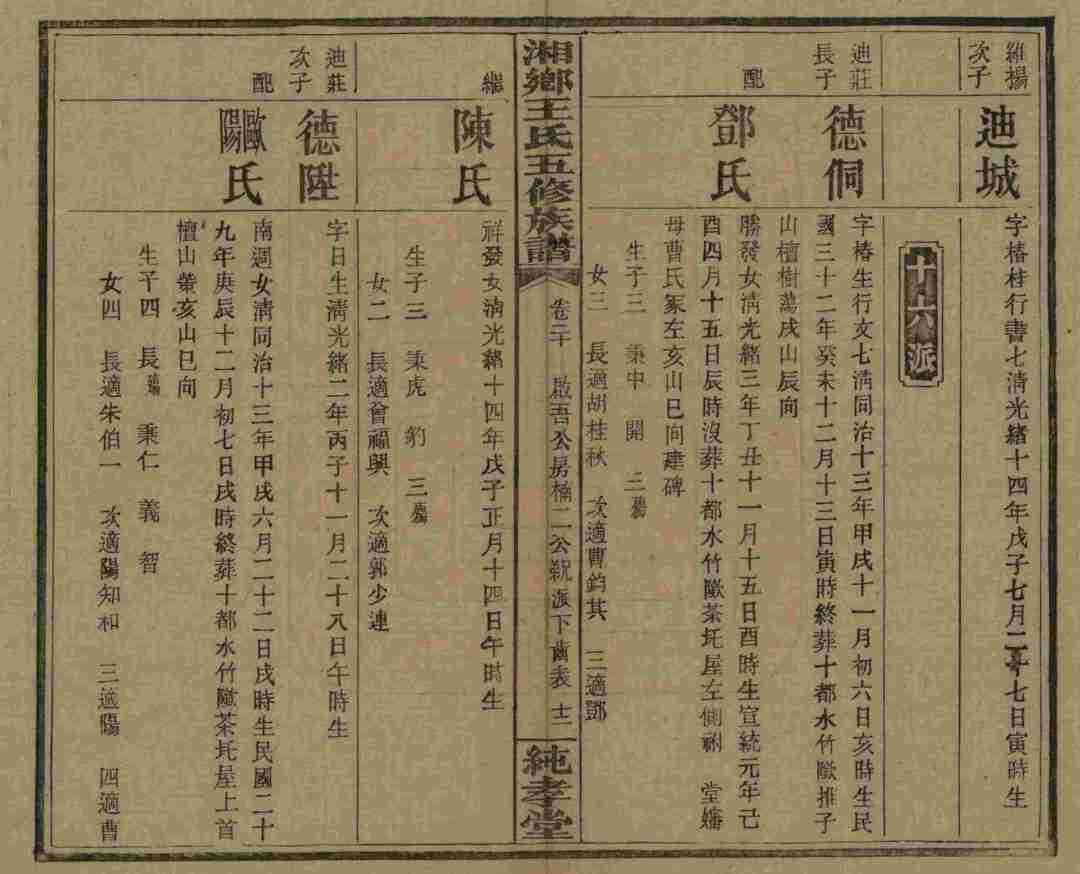 維揚
次子
迪城
字椿桂行書七清光緒十四年戊子七月二十七日寅時生
十六派
迪莊
長子
德侗
字椿生行文七清同治十三年甲戌十一月初六日亥時生民
國三十二年癸未十二月十三日寅時終葬十都水竹墩推子
山檀樹蕩戌山辰向
配
鄧氏
勝發女清光緒三年丁丑十一月十五日酉時生宣統元年己
酉四月十五日辰時沒葬十都水竹墩茶圫屋左側祔 堂嬸
母曹氏冢左亥山巳向建碑
生子三 秉中 開 三
女三 長適胡桂秋 次適曹鈞其 三適鄧
湘鄉王氏五修族譜
卷二十 啟吾公房楠二公 派下齒表 十二
純孝堂
繼
陳氏
祥發女清光緒十四年戊子正月十四日午時生
生子三 秉虎 豹 三
女二 長適會福興 次適郭少連
迪莊
次子
德陞
字日生清光緒二年丙子十一月二十八日午時生
配
歐陽氏
南週女清同治十三年甲戌六月二十二日戌時生民國二十
九年庚辰十二月初七日戌時終葬十都水竹墩茶圫屋上首
檀山 亥山巳向
生子四 長 秉仁 義 智
女四 長適朱伯一 次適陽知和 三適陽 四適曹